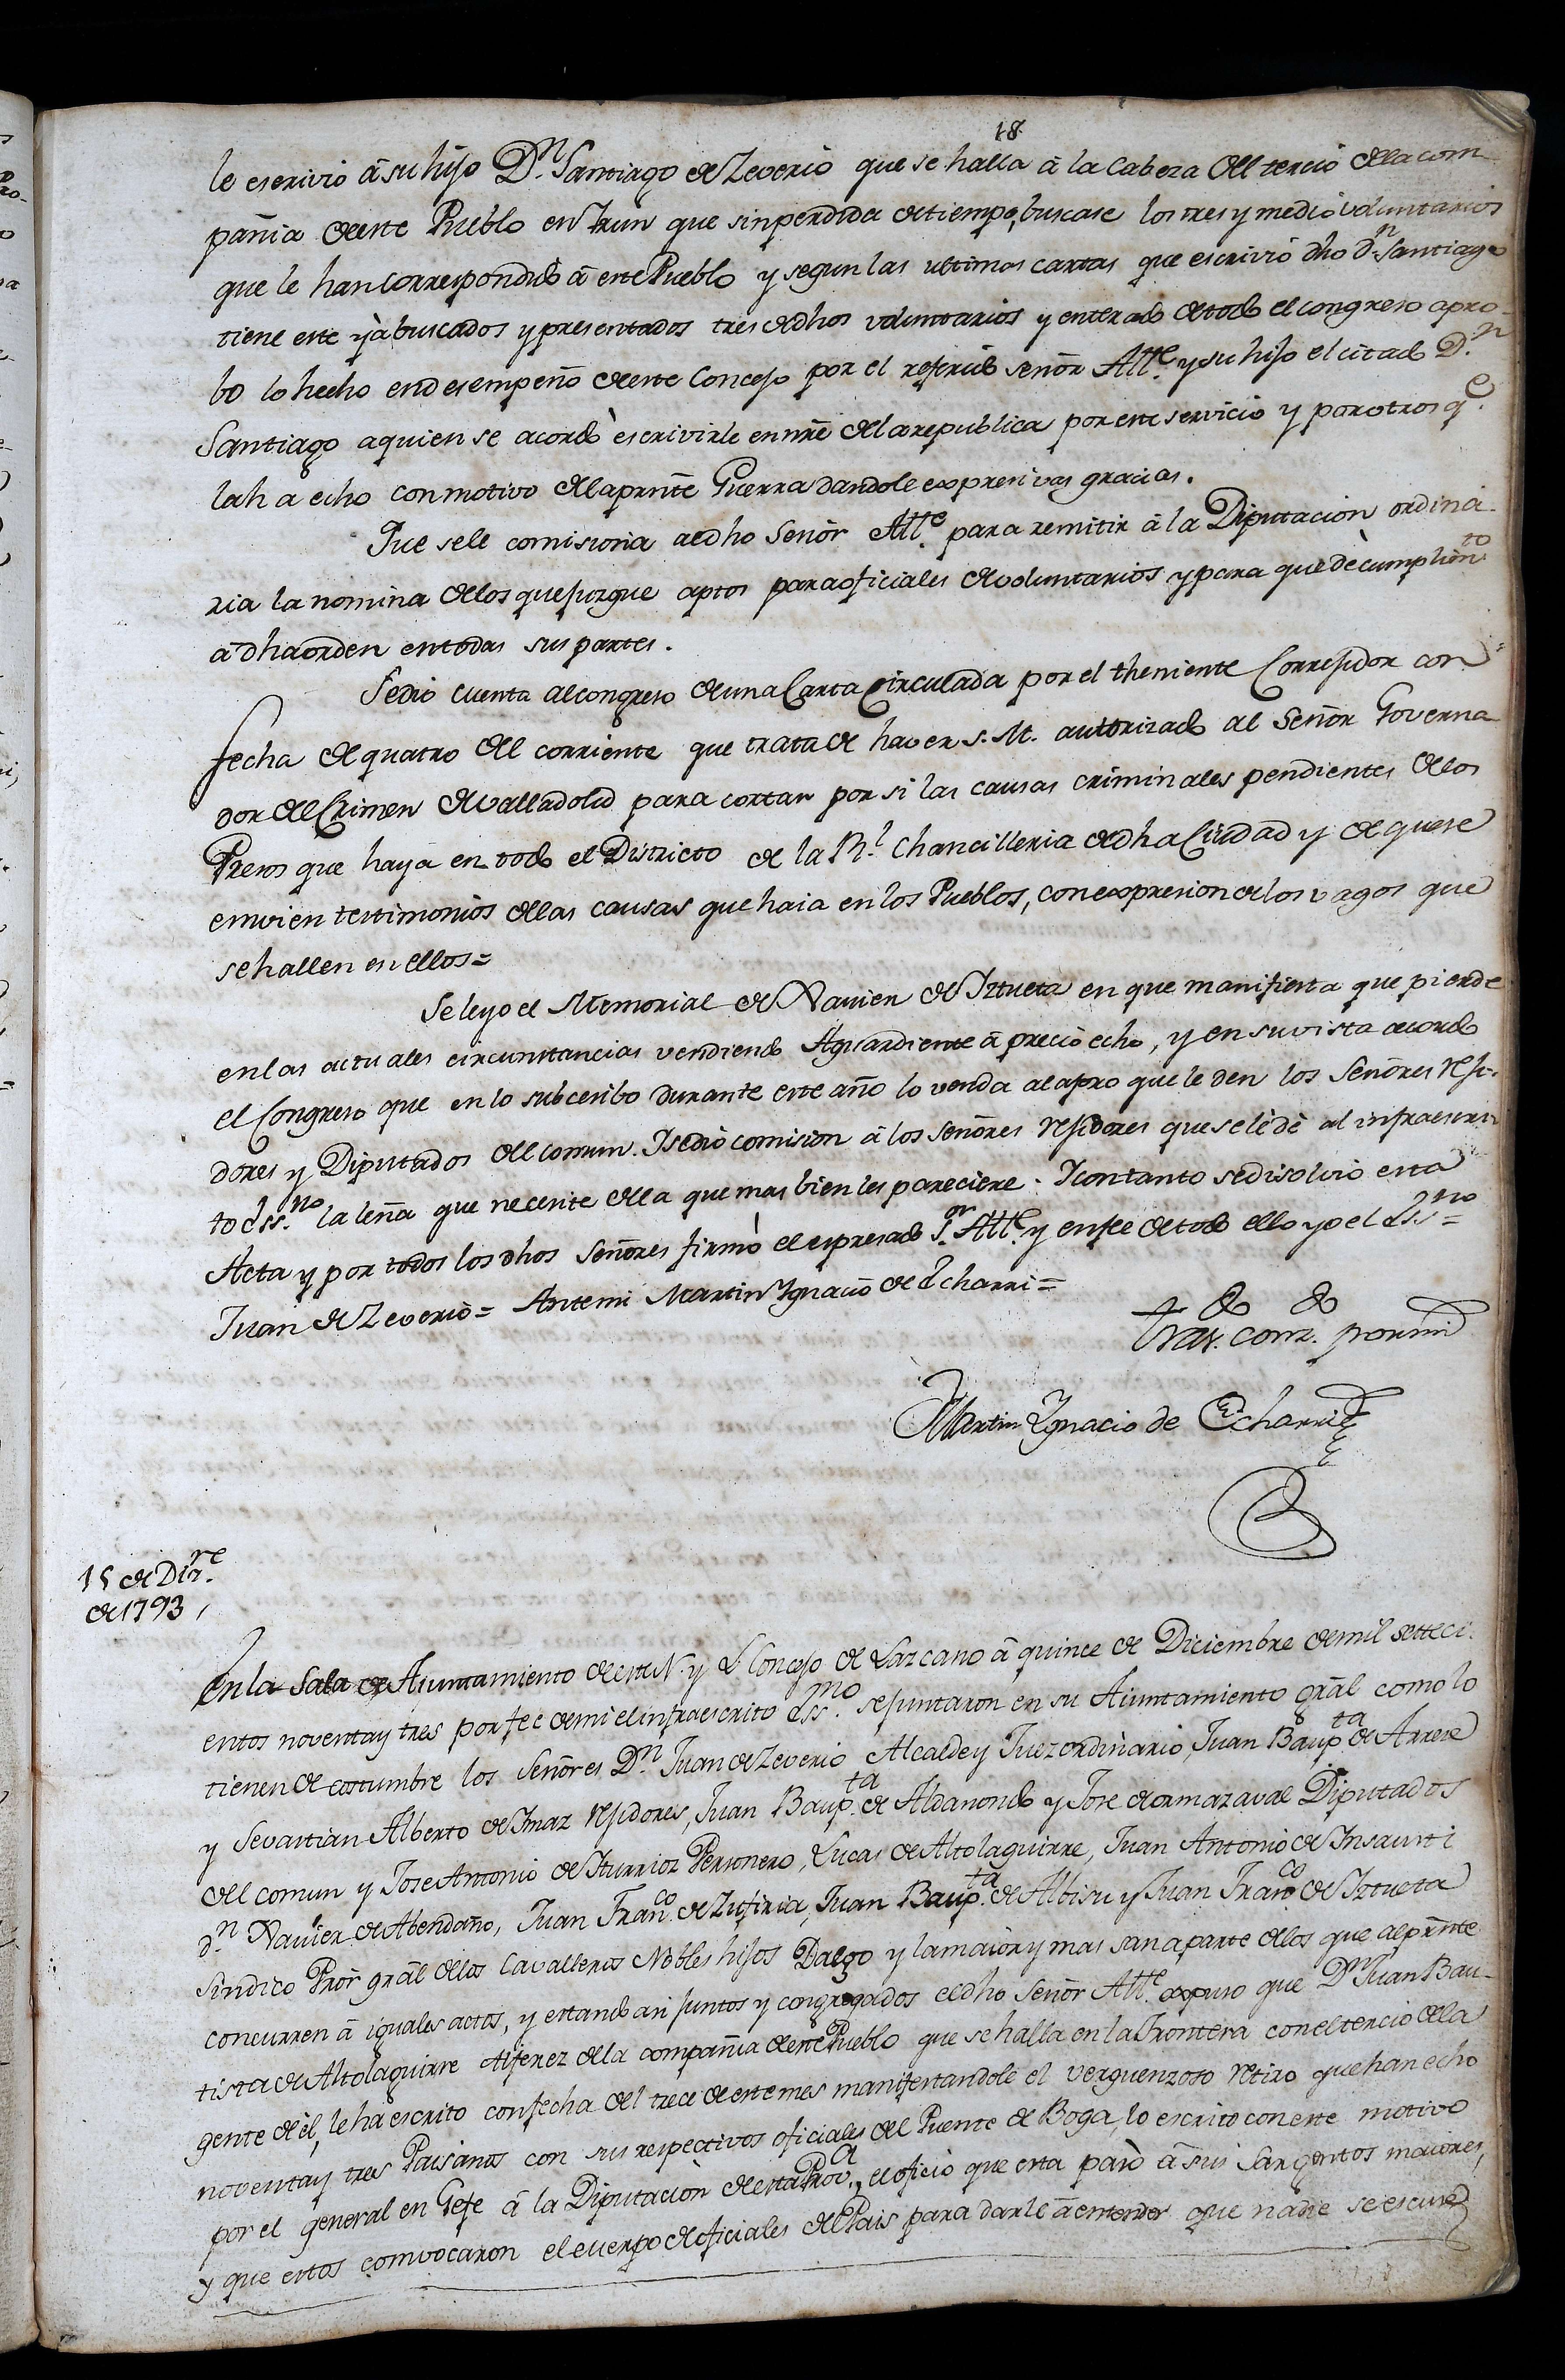 18
le escrivio â su hijo D.n Santiago de Zeverio que se halla â la Cabeza del tercio dela com
pañia deeste Pueblo en Irun que sin perdida de tiempo, buscase los tres y medio voluntarios
que le han correspondido â este Pueblo y segun las ultimas cartas que escrivió dho d.n Santiago
tiene este ya buscados y presentados tres dedhos voluntarios y enterado detodo el congreso apro-
bo lo hecho endesempeño deeste Concejo por el referido señor Alle. y su hijo el citado D.n
Santiago aquien se acordò escrivirle en nrẽ dela republica por este servicio y por otros q.e
lah a echo con motivo delaprnte Guerra dandole expresivas gracias.
Que sele comisiona aedho Señor Alle. para remitir â la Diputacion ordina-
ria la nomina delos que juzgue aptos para oficiales devoluntarios y para que dè cumplim.to
a dha orden entodas sus partes.
Sedió cuenta alcongreso deuna Carta Circulada por el theniente Corregidor con
fecha de quatro del corriente que trata de haver s. M. autorizado al Señor Governa-
dor del Crimen de Valladolid para cortar por si las causas criminales pendientes delos
Presos que haya en todo el Districto de la R.l Chancilleria dedha Ciudad y de quese
envien testimonios delas causas que haia en los Pueblos, con expresion delos vagos que
se hallen en ellos=
Se leyo el Memorial de Xavier de Iztueta en que manifiesta que pierde
enlas actuales circunstancias vendiendo Aguardiente â precio echo, y en su vista acordo
el Congreso que en lo subcesibo durante este año lo venda alapro que le den los Señores reji-
dores y Diputados del comun. Y sedió comision â los señores rejidores que se le dè al infraescri-
to Ess.no la leña que necesite dela que mas bien les pareciere. Y contanto se disolvió esta
Acta y por todos los dhos Señores firmò el espresado S.or Alle. y enfee detodo ello yo el Ess.no=
Juan de Zeverio= Antemi Martin Ygnacio de Echarri=
Tras. conz. pormi
Martin Ygnacio de Echarri
15 de Diz.re
de 1793,
En la Sala de Aiuntamiento deeste N. y L. Concejo de Lazcano â quince de Diciembre demil setteci-
entos noventay tres por fee demi elinfraescrito Ess.no se juntaron en su Aiuntamiento grãl como lo
tienen de costumbre los Señores D.n Juan de Zeverio Alcalde y Juez ordinario, Juan Baup.ta de Arrese
y Sevastian Alberto de Imaz rejidores, Juan Baup.ta de Aldanondo y Jose de ormazaval Diputados
del comun y Jose Antonio de Iturrioz Personero, Lucas de Altolaguirre, Juan Antonio de Insausti
d.n Xavier de Abendaño, Juan Fran.co de Zufiria, Juan Baup.ta de Albisu y Juan Fran.co de Iztueta
Sindico Pror grãl delos Cavalleros Nobles hijos Dalgo y lamaior y mas sana parte delos que alprnte
concurren â iguales actos, y estando asi juntos y congregados eldho Señor Alle. expuso que D.n Juan Bau-
tista de Altolaguirre Alferez dela compañia deeste Pueblo que se halla en la Frontera con el tercio dela
gente deèl, le ha escrito confecha del trece deeste mes manifestandole el verguenzoso retiro que han echo
noventay tres Paisanos con sus respectivos oficiales del Puente de Boga, lo escrito con este motivo
por el general en Gefe â la Diputacion deesta Prov.a, el oficio que esta pasò â sus Sargentos maiores,
y que estos convocaron el cuerpo de oficiales del Pais para darle â entender que nadie se escuse